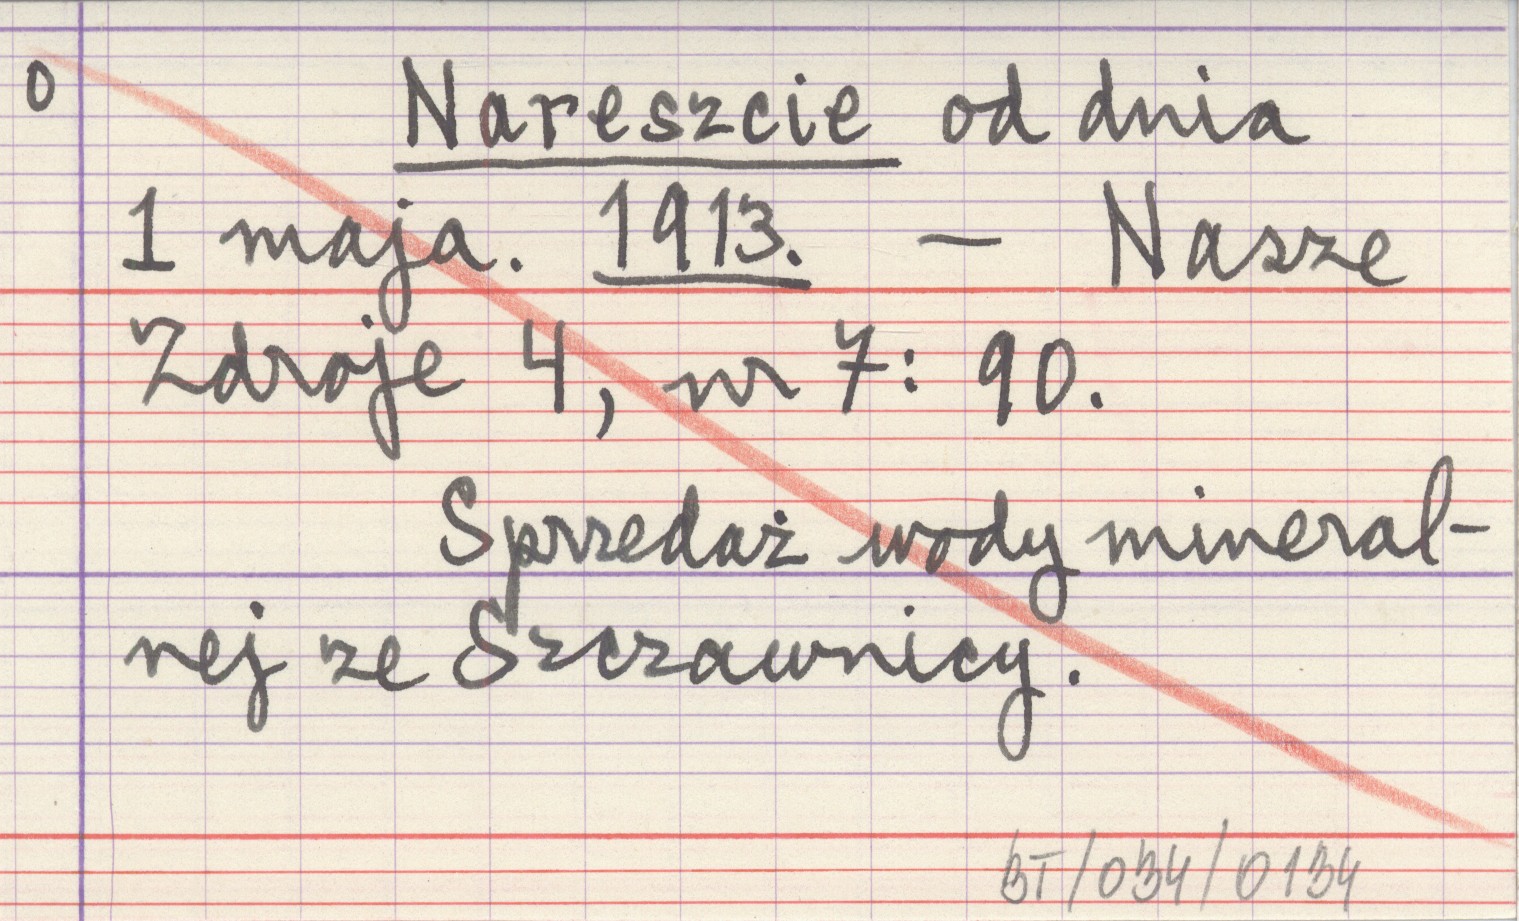 0
Nareszcie od dnia
1 maja. 1913. – Nasze
Zdroje 4, nr 7: 90.
Sprzedaż wody mineral-
nej ze Szczawnicy.
BT/034/0134